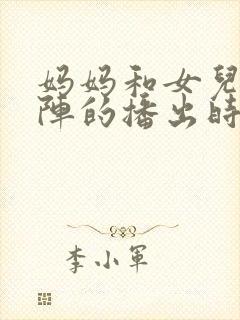 妈妈和女兒
陣的播出時
李小軍